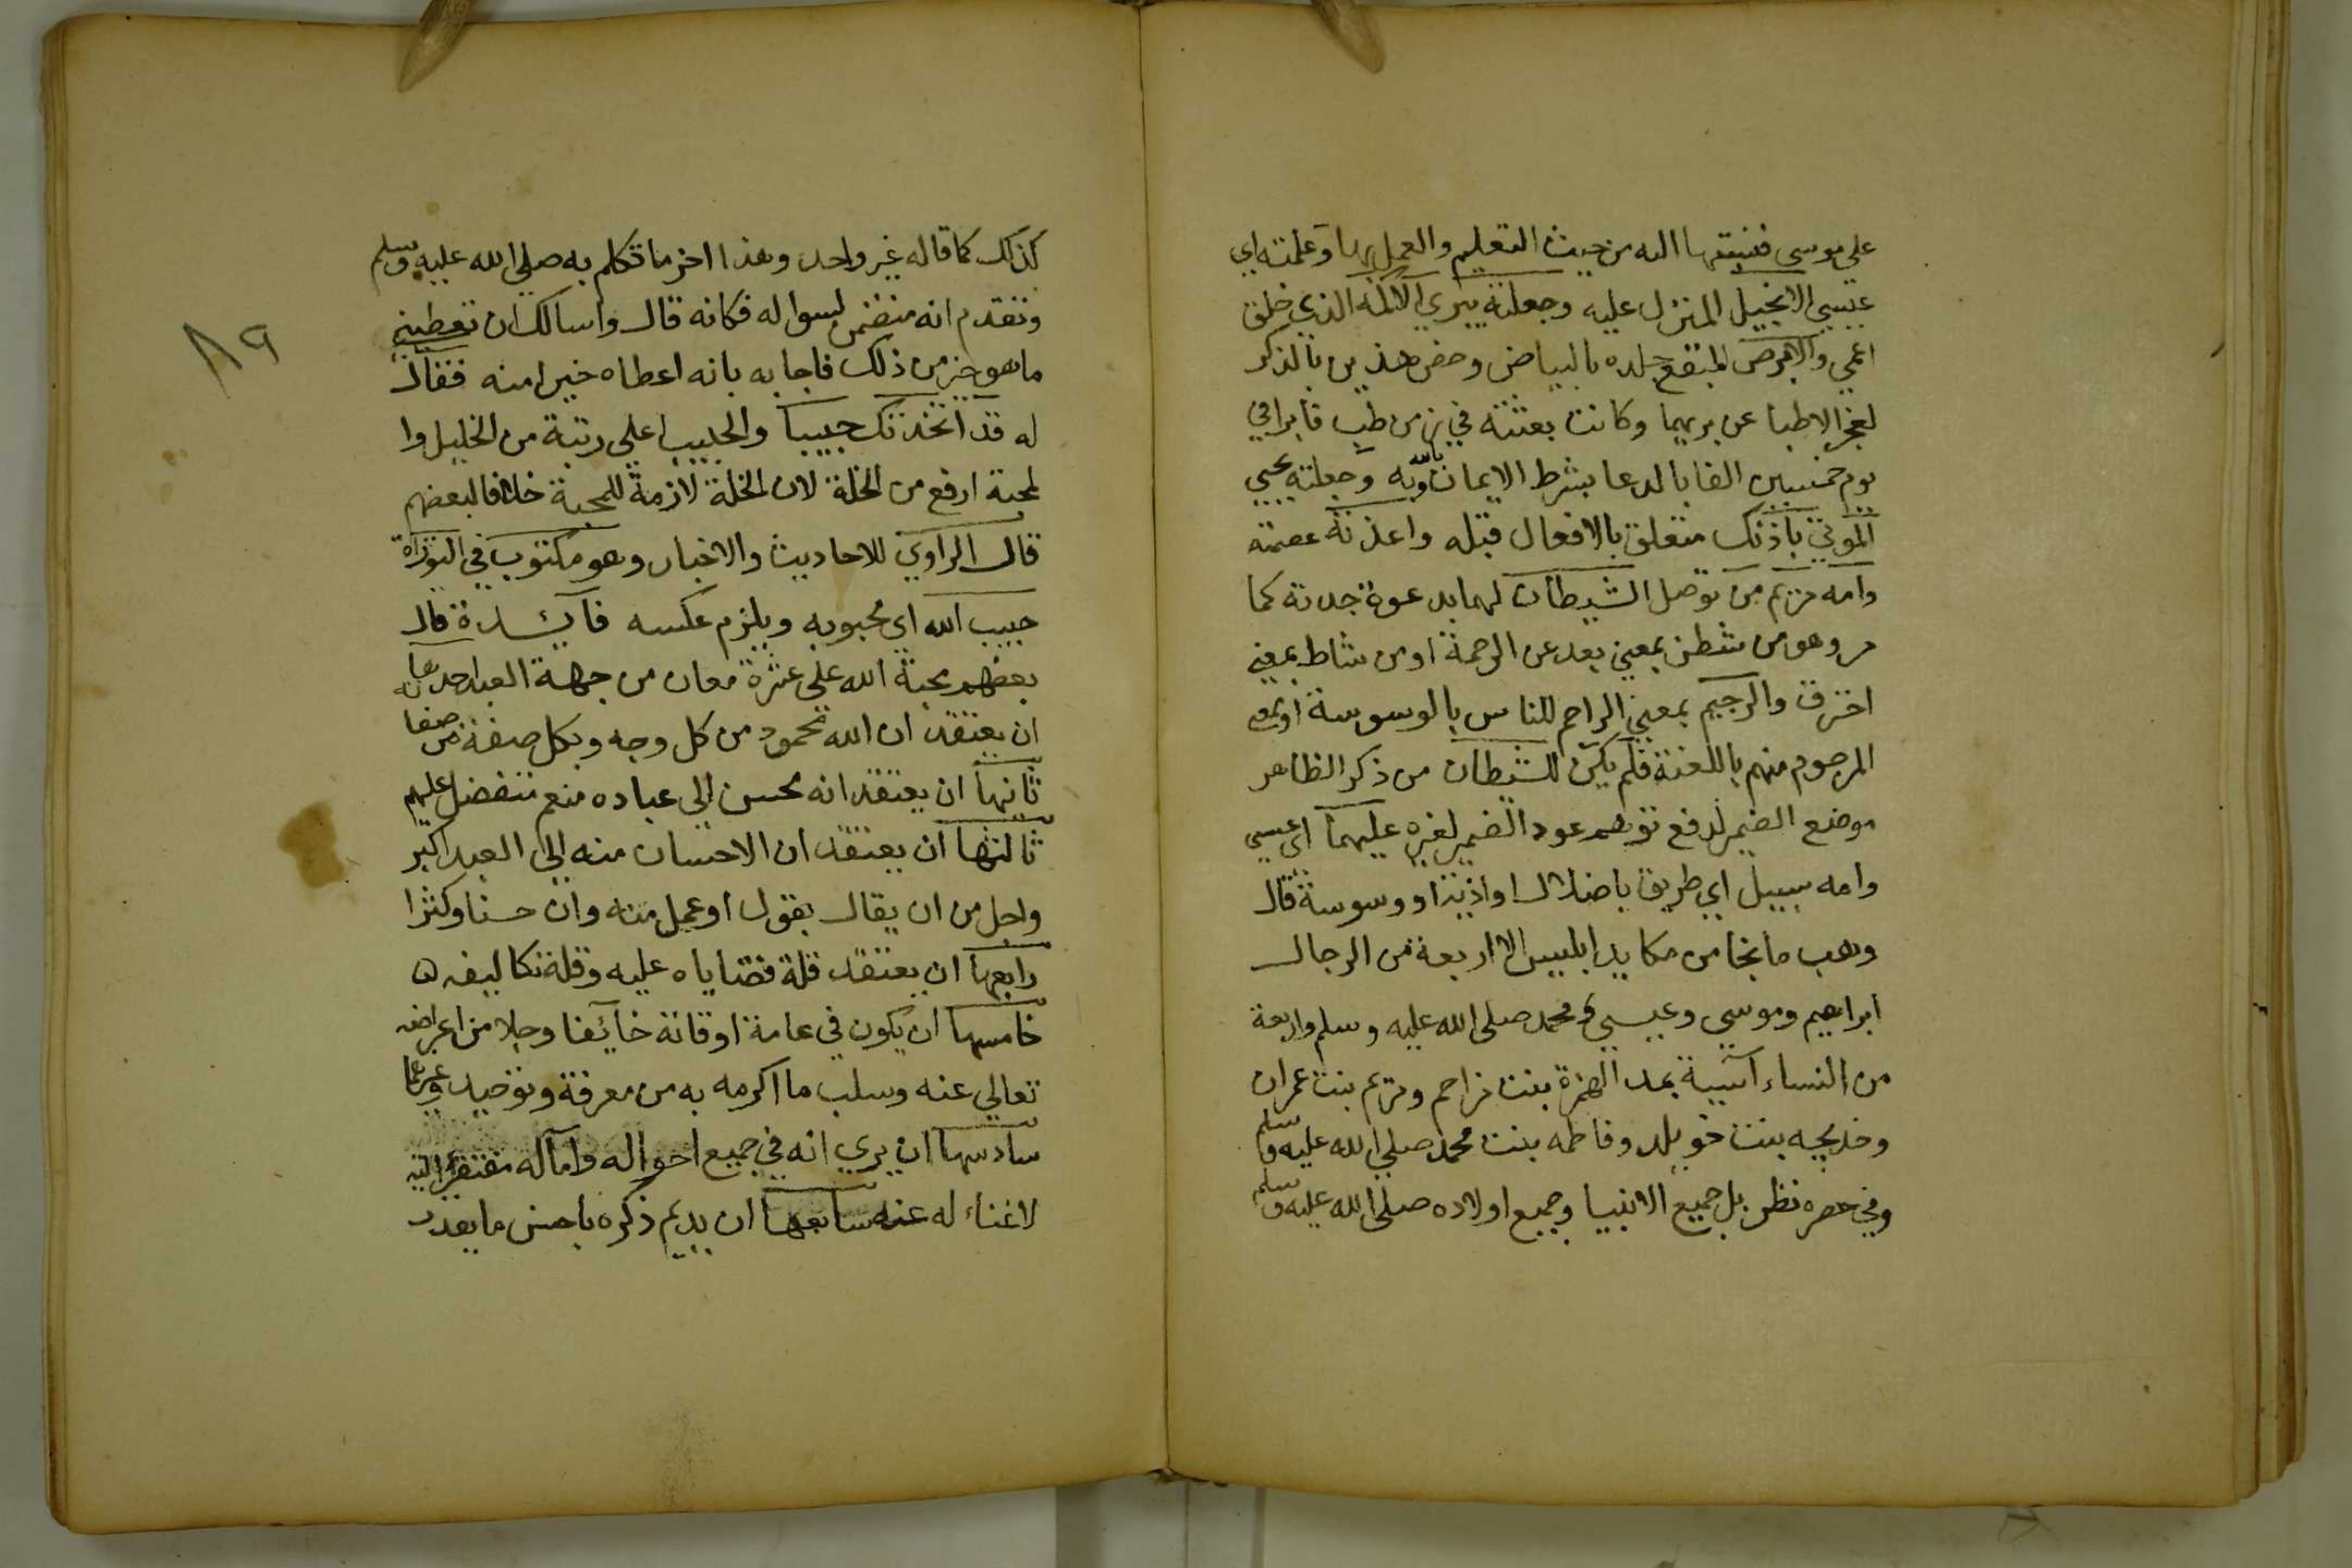 علي موسى فنسبتها اليه من حيث التعليم والعمل بها وعلمته اي
عيسي الانجيل المنزل عليه وجعلته يبري الاكمه الذي خلق
اعمي والابرص المبقع جلده بالبياض وخص هذين بالذكر
لعجز الاطبا عن بريهما وكانت بعثته في زمن طب فابرا في
يوم خمسين الفا بالدعا بشرط الايمان بالله وبه وجعلته يحيي
الموتي باذنك متعلق بالافعال قبله واعذته عصمته
وامه مريم من توصل الشيطان لهما بدعوة جدته كما
مر وهو من شطن بمعني بعد عن الرحمة او من شاط بمعني
احترق والرجيم بمعني الراجم للناس بالوسوسة او بمعني
المرجوم منهم باللعنة فلم يكن للشيطان من ذكر الظاهر
موضع الضمير لدفع توهم عود الضمير لغيره عليهما اي عيسي
وامه سبيل اي طريق باضلال او اذية او وسوسة قال
وهب ما نجا من مكايد ابليس الا اربعة من الرجال
ابراهيم وموسي وعيسي ومحمد صلى الله عليه وسلم واربعة
من النساء آسية بمد الهمزة بنت مزاحم ومريم بنت عمران
وخديجه بنت خويلد وفاطمه بنت محمد صلي الله عليه وسلم
وفي حصره نظر بل جميع الانبيا وجميع اولاده صلى الله عليه وسلم
٨٩
كذلك كما قاله غير واحد وهذا اخر ما تكلم به صلي الله عليه وسلم
وتقدم انه متضمن لسواله فكانه قال واسالك ان تعطيني
ما هو خير من ذلك فاجابه بانه اعطاه خيرا منه فقال
له قد اتخذتك حبيبا والحبيب اعلي رتبة من الخليل وا
لمحبة ارفع من الخلة لان الخلة لازمة للمحبة خلافا لبعضهم
قال الراوي للاحاديث والاخبار وهو مكتوب في التوراة
حبيب الله اي محبوبه ويلزم عكسه فائدة قال
بعضهم محبة الله علي عشرة معان من جهة العبد احدها
ان يعتقد ان الله محمود من كل وجه وبكل صفة من صفاته
ثانيها ان يعتقد انه محسن الي عباده منعم متفضل عليهم
ثالثها ان يعتقد ان الاحسان منه الي العبد اكبر
واجل من ان يقال بقول او عمل منه وان حسنا وكثرا
رابعها ان يعتقد قلة قضاياه عليه وقلة تكاليفه
خامسها ان يكون في عامة اوقاته خايفا وجلا من اعراضه
تعالي عنه وسلب ما اكرمه به من معرفة وتوحيد وغيرهما
سادسها ان يري انه في جميع احواله وآماله مفتقرا اليه
لاغناء له عنه سابعها ان يديم ذكره باحسن ما يقدر